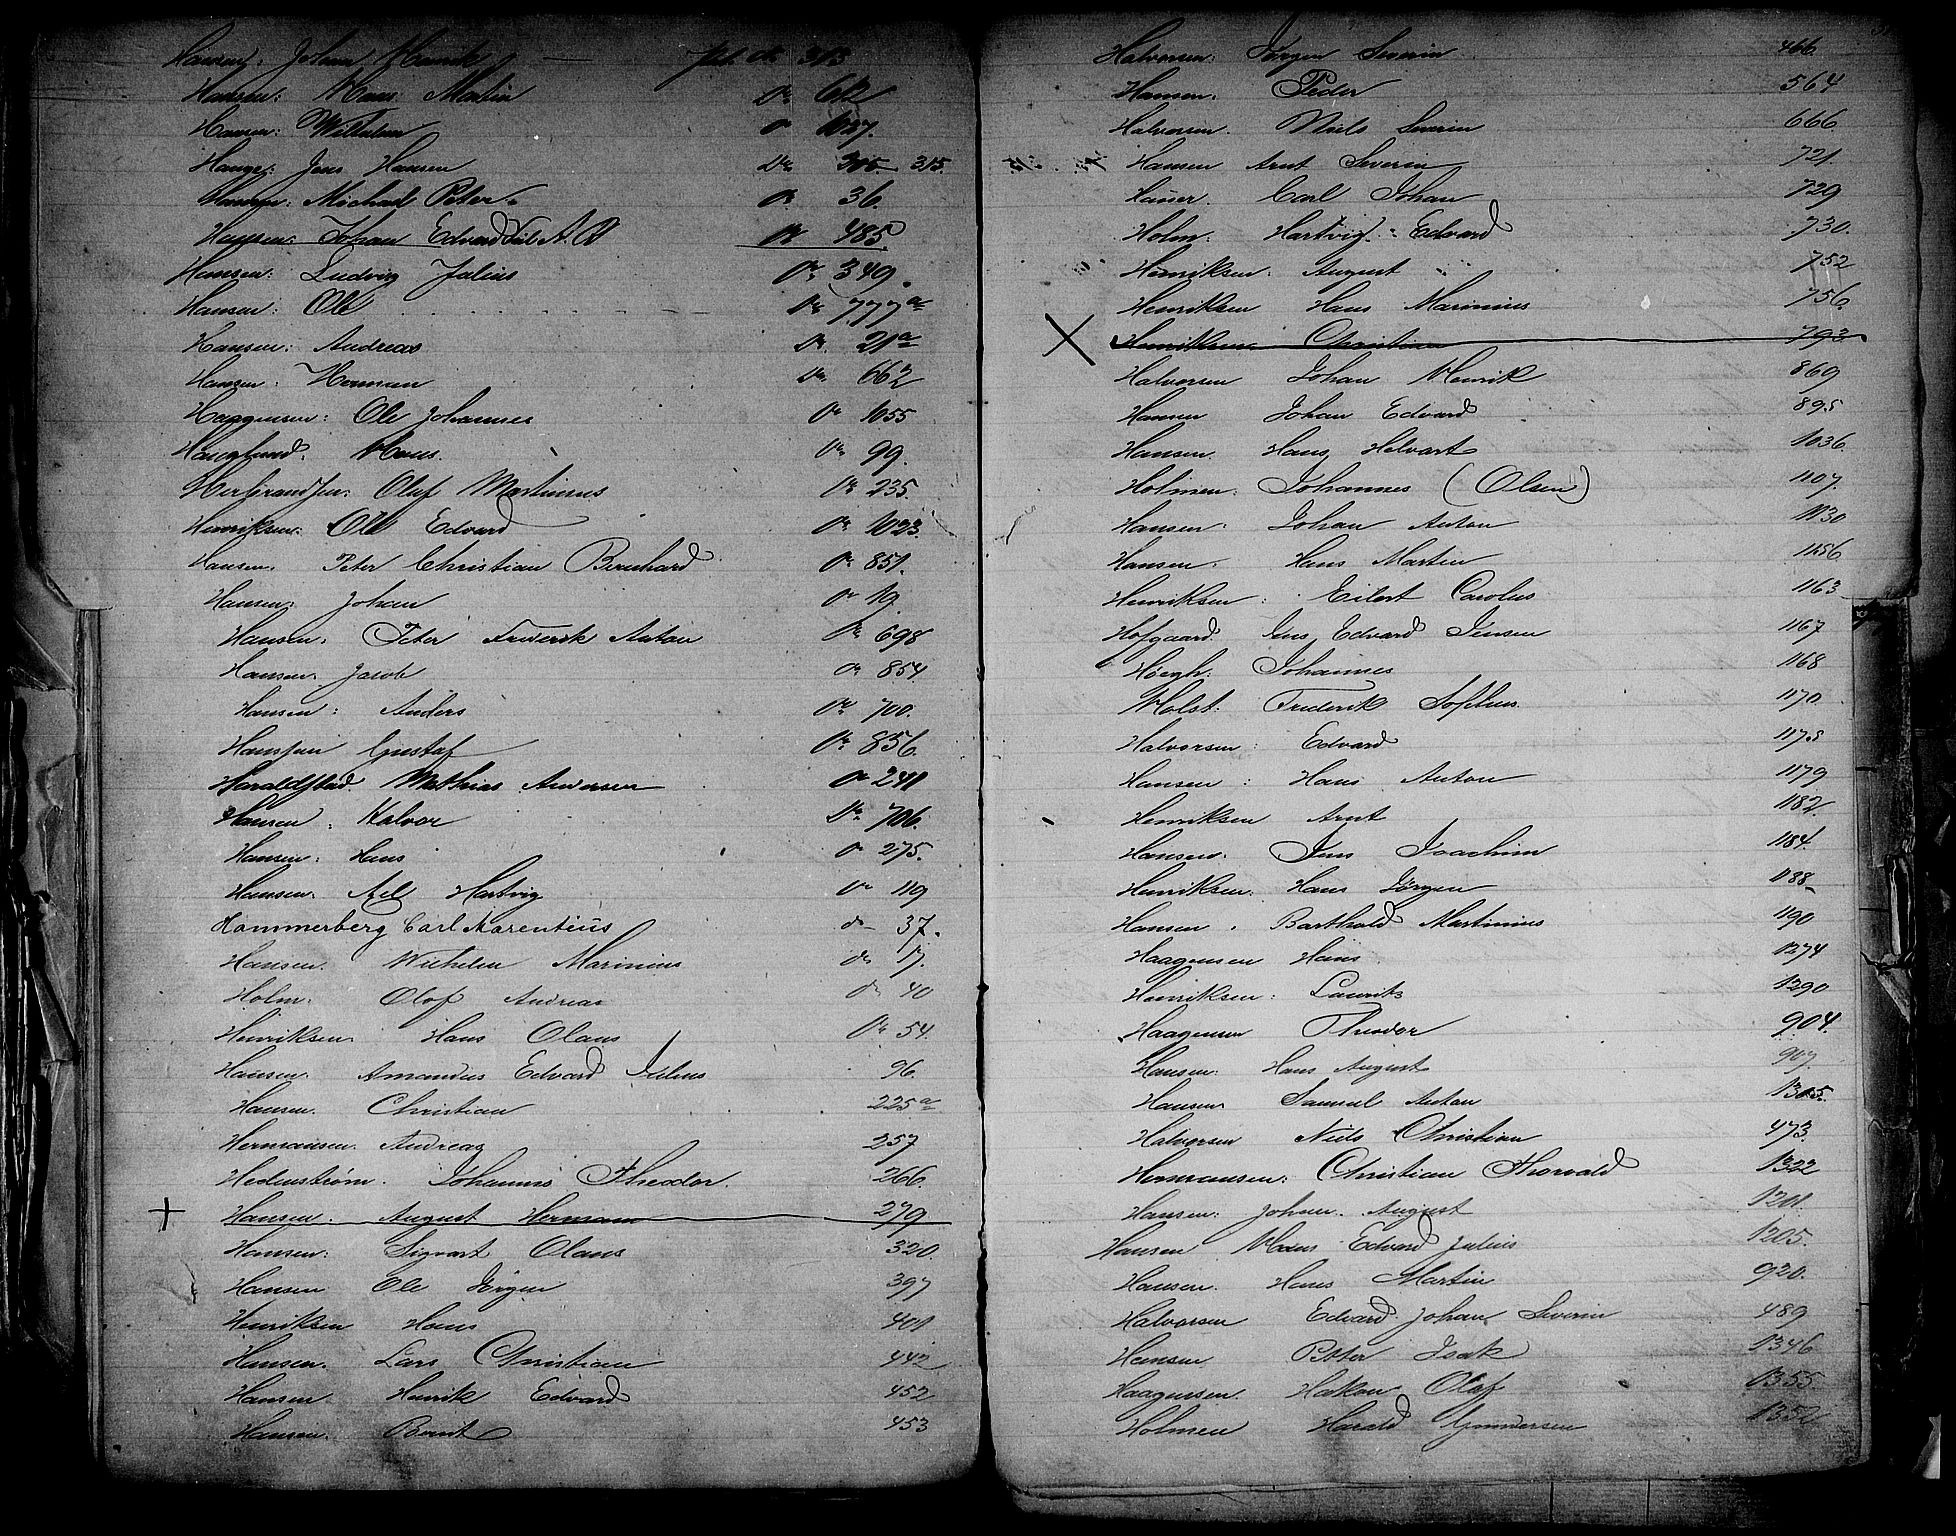 Hansen: Johan Henrik — pat. do 313
Hansen: Hans Martin Do 612
Hansen: Wilhelm Do 1037.
Hauge: Jens Hansen Do 305. 315.
Hansen: Michael Peter Do 36.
Hansen: Johan Edvard Do 485.
Hansen: Ludvig Julius Do 349.
Hansen: Ole Do 777a
Hansen: Andreas Do 21a
Hansen: Herman Do 662
Haagensen: Ole Johannes Do 1055
Hauglund. Hans. Do 99.
Herbrandsen: Oluf Martinius Do 235.
Henriksen: Ole Edvard Do 1023.
Hansen. Peter Christian Bernhard Do 851.
Hansen: Johan Do 19.
Hansen. Peter Frederik Anton Do 698
Hansen. Jacob Do 854
Hansen: Anders Do 700.
Hanssen Gustaf Do 856.
Haraldstad Mathias Andersen Do 241
Hansen: Halvor Do 706.
Hansen: Hans Do 275.
Hansen. Axel Hartvig Do 119
Hammerberg Carl Marentius do 37.
Hansen. Wilhelm Marinius do 17.
Holm. Olof Andreas do 40
Henriksen. Hans Olaus Do 54.
Hansen. Amandus Edvard Julius 96.
Hansen. Christian 225a
Hermansen. Andreas 257
Hedenstrøm. Johannes Theodor. 266.
+ Hansen. August Herman 279
Hansen: Sigvart Olaus 320.
Hansen Ole Jörgen 397
Henriksen Hans 401
Hansen. Lars Christian 442
Hansen. Henrik Edvard 452
Hansen. Bernt 453
Halvorsen: Jørgen Severin 466
Hansen. Peder 564
Halvorsen. Niels Severin 666
Hansen Arnt Severin 721.
Hauer. Carl Johan 729
Holm: Hartvig Edvard 730.
Henriksen. August 752
Henriksen Hans Marinius 756.
X Henriksen Christian 793
Halvorsen Johan Henrik 869
Hansen Johan Edvard 895
Hansen. Hans Helvart 1036.
Holmen. Johannes (Olsen) 1107.
Hansen: Johan Anton 1130
Hansen. Hans Martin 1156
Henriksen: Eilert Carolus 1163
Hofgaard Jens Edvard Jensen 1167
Høegh. Johannes 1168
Holst. Frederik Sophus 1170
Halvorsen: Edvard 1178
Hansen: Hans Anton 1179
Henriksen Arnt 1182.
Hansen: Jens Joachim 1184.
Henriksen. Hans Jörgen 1188
Hansen. Barthold Martinius 1190
Haagensen Hans 1274
Henriksen: Lauritz 1290
Haagensen Theodor 904.
Hansen: Hans August 907.
Hansen Samuel Anton 1305.
Halvorsen Niels Christian 473.
Hermansen: Christian Thorvald 1322
Hansen: Johan August 1201.
Hansen Hans Edvard Julius 1205.
Hansen. Hans Martin 920.
Halvorsen Edvard Johan Severin 489
Hansen Peter Isak 1346
Haagensen. Hakon Olaf 1355.
Holmen Harald Gundersen 1352